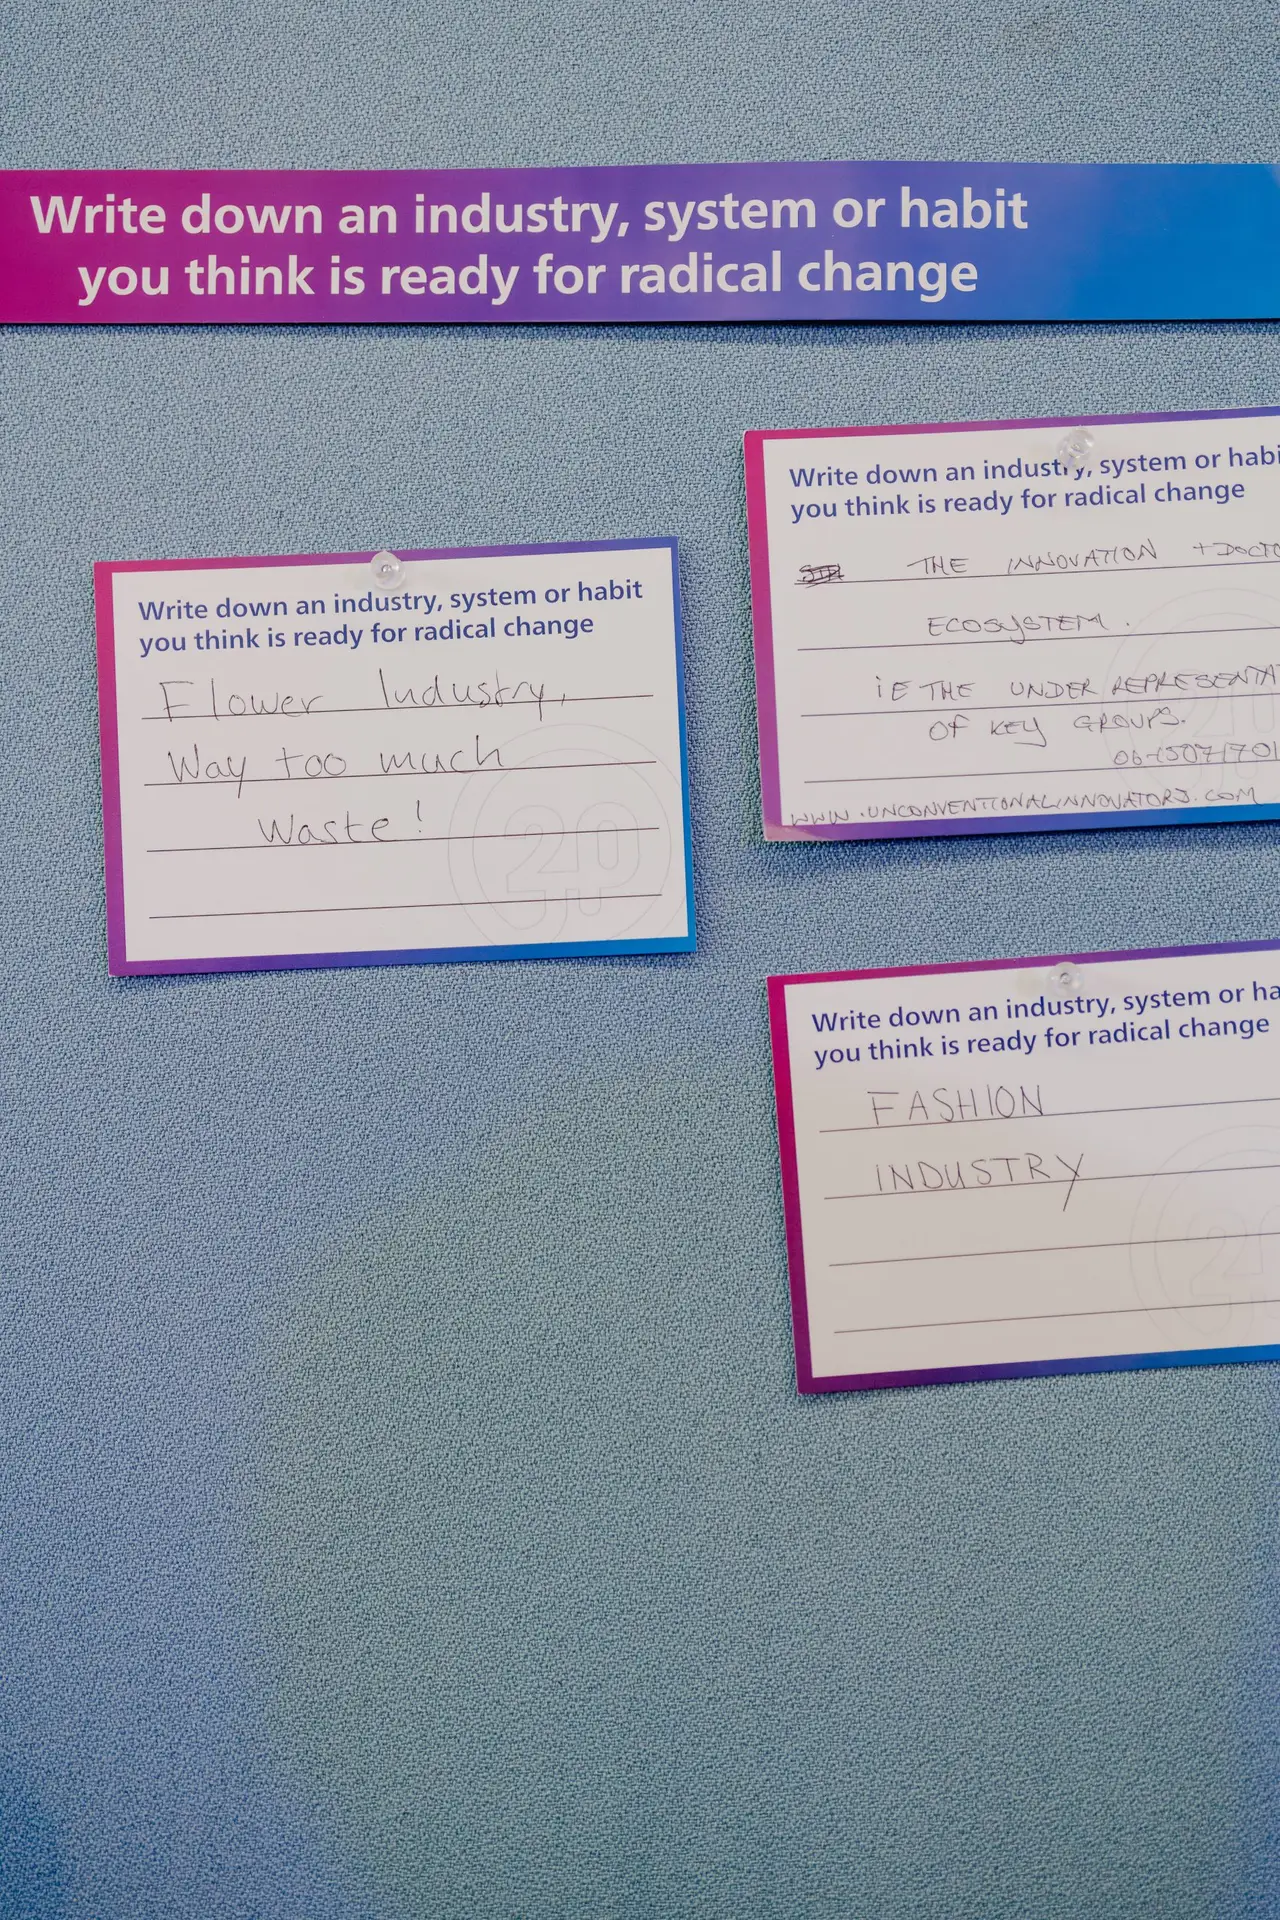 Write down an industry, system or habit
you think is ready for radical change
Write down an industry, system or habit
you think is ready for radical change
Flower Industry,
Way too much
Waste!
20
Write down an industry, system or habi
you think is ready for radical change
THE INNOVATION + DOCTO
ECOSYSTEM.
iE THE UNDER REPRESENTAT
OF KEY GROUPS.
WWW.UNCONVENTIONALINNOVATORS.COM
20
Write down an industry, system or ha
you think is ready for radical change
FASHION
INDUSTRY
20